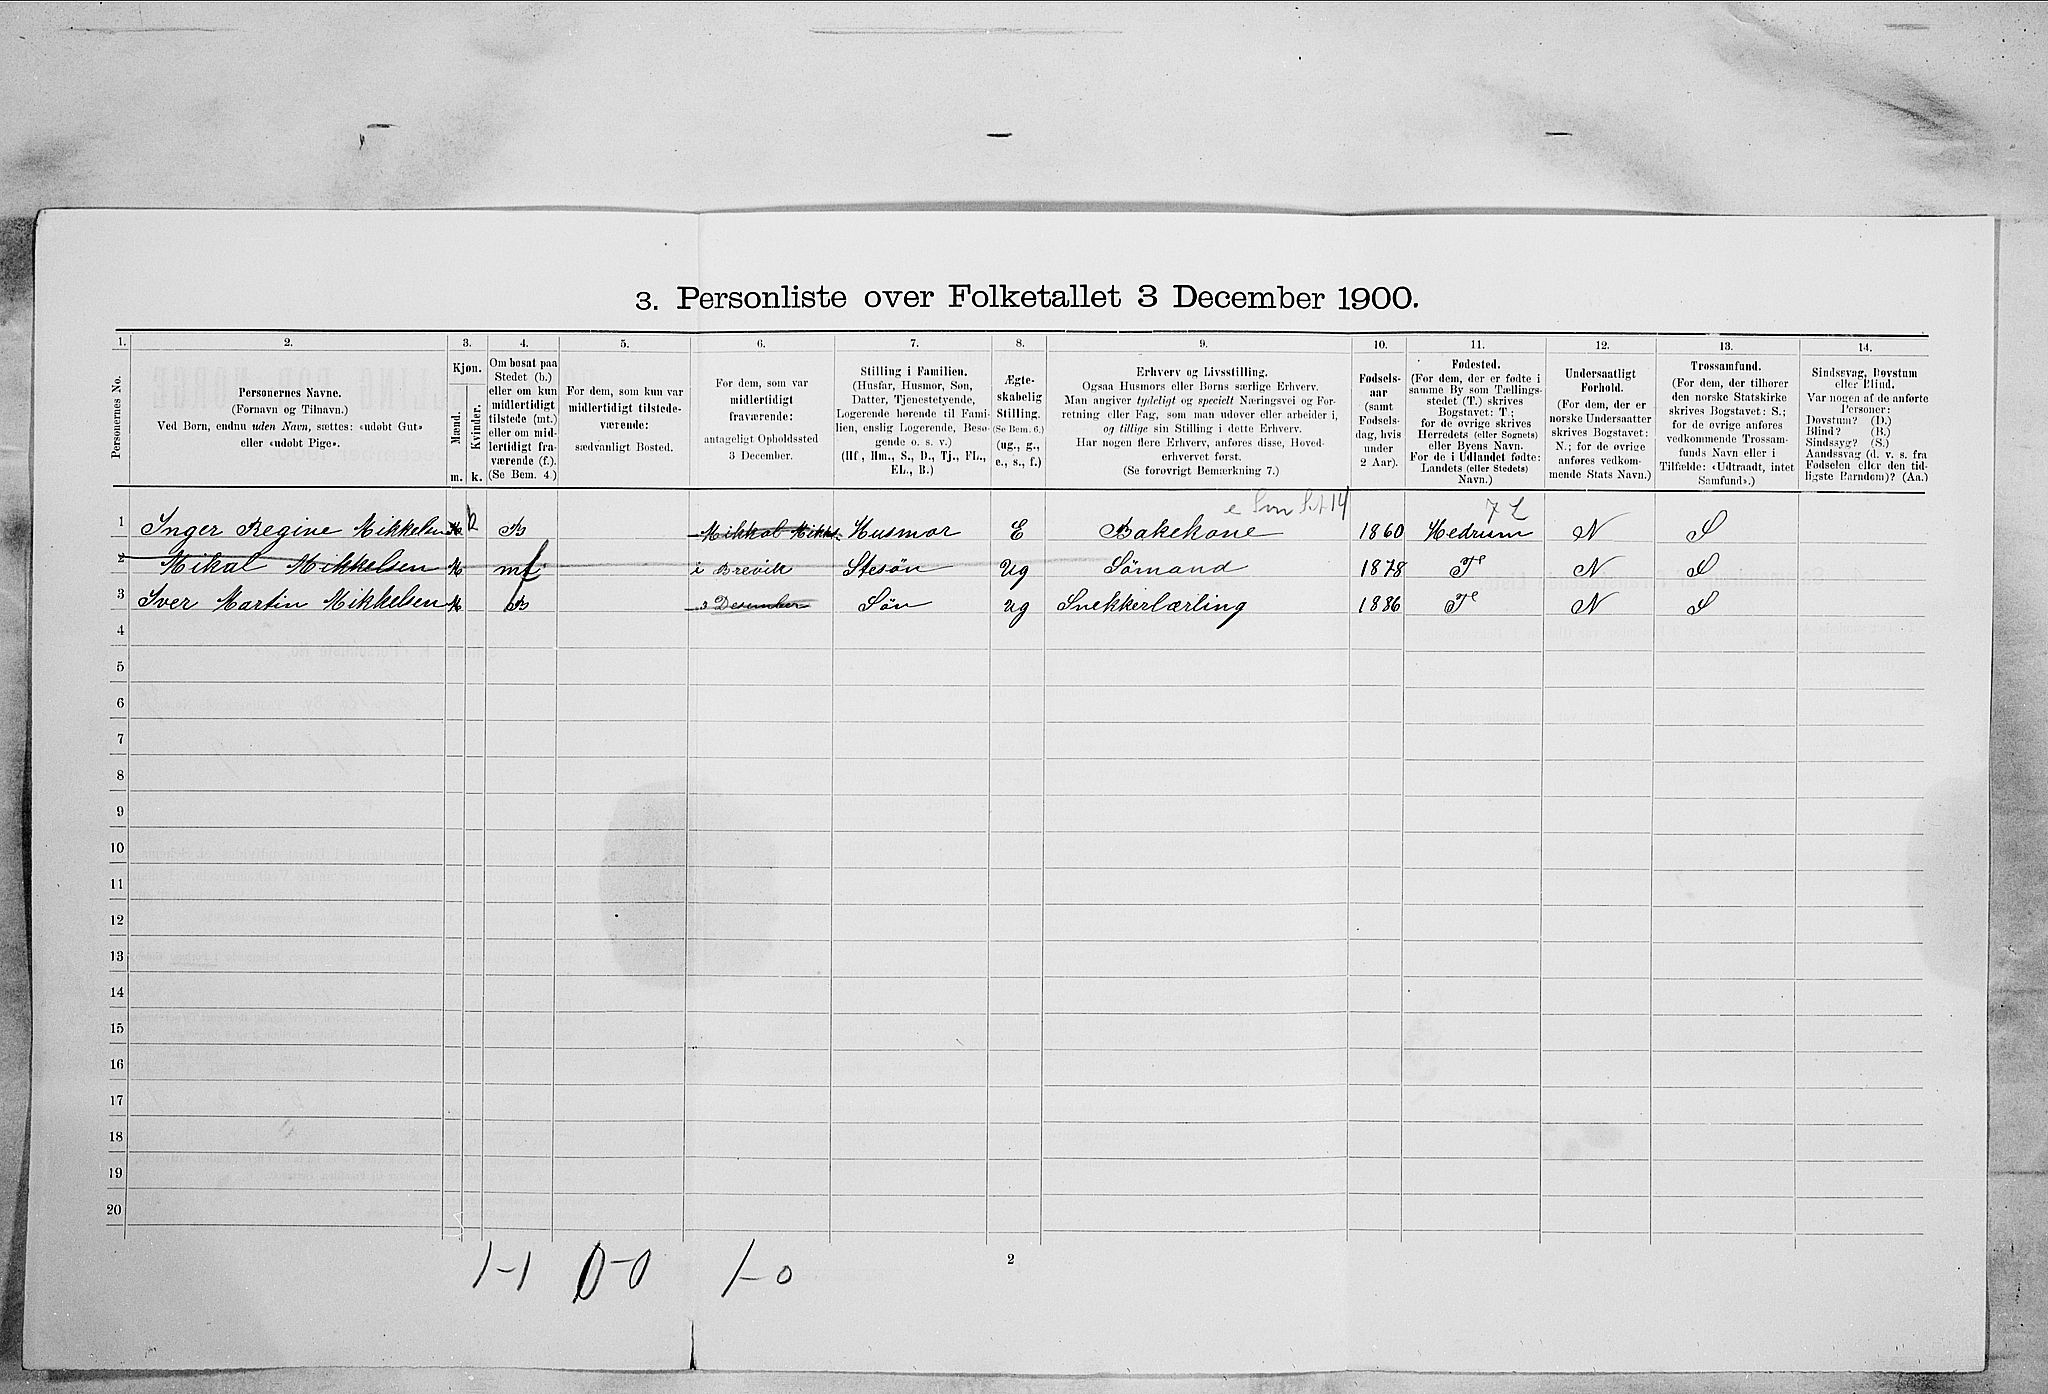 3. Personliste over Folketallet 3 December 1900.
1. 2. 3. 4. 5. 6. 7. 8. 9. 10. 11. 12. 13. 14.
Personernes No.
Personernes Navne.
(Fornavn og Tilnavn.)
Ved Børn, endnu uden Navn, sættes: «udøbt Gut»
eller «udøbt Pige».
Kjøn.
Mænd. Kvinder.
m. k.
Om bosat paa
Stedet (b.)
eller om kun
midlertidigt
tilstede (mt.)
eller om mid-
lertidigt fra-
værende (f.).
(Se Bem. 4.)
For dem, som kun var
midlertidigt tilstede-
værende:
sædvanligt Bosted.
For dem, som var
midlertidigt
fraværende:
antageligt Opholdssted
3 December.
Stilling i Familien.
(Husfar, Husmor, Søn,
Datter, Tjenestetyende,
Logerende hørende til Fami-
lien, enslig Logerende, Besø-
gende o. s. v.)
(Hf., Hm., S., D., Tj., FL.,
EL., B.)
Ægte-
skabelig
Stilling.
(Se Bem. 6.)
(ug., g.,
e., s., f.)
Erhverv og Livsstilling.
Ogsaa Husmors eller Børns særlige Erhverv.
Man angiver tydeligt og specielt Næringsvei og For-
retning eller Fag, som man udover eller arbeider i,
og tillige sin Stilling i dette Erhverv.
Har nogen flere Erhverv, anføres disse, Hoved-
erhvervet først.
(Se forøvrigt Bemærkning 7.)
Fødsels-
aar
(samt
Fødsels-
dag, hvis
under
2 Aar).
Fødested.
(For dem, der er fødte i
samme By som Tællings-
stedet (T.) skrives
Bogstavet: T.;
for de øvrige skrives
Herredets (eller Sognets)
eller Byens Navn.
For de i Udlandet fødte:
Landets (eller Stedets)
Navn.)
Undersaatligt
Forhold.
(For dem, der er
norske Undersaatter
skrives Bogstavet:
N.; for de øvrige
anføres vedkom-
mende Stats Navn.)
Trossamfund.
(For dem, der tilhører
den norske Statskirke
skrives Bogstavet: S.;
for de øvrige anføres
vedkommende Trossam-
funds Navn eller i
Tilfælde: «Udtraadt, intet
Samfund».)
Sindssvag, Døvstum
eller Blind.
Var nogen af de anførte
Personer:
Døvstum? (D.)
Blind? (B.)
Sindssyg? (S.)
Aandssvag (d. v. s. fra
Fødselen eller den tid-
ligste Barndom)? (Aa.)
1 Inger Regine Mikkelsen k B Husmor E Bakekone 1860 Hedrum N S
2 Mikal Mikkelsen M f i Brevik Stesøn ug Sømand 1878 T N S
3 Iver Martin Mikkelsen M B 3 Desember Søn ug Snekkerlærling 1886 T N S
4
5
6
7
8
9
10
11
12
13
14
15
16
17
18
19
20
1-1 0-0 1-0
2